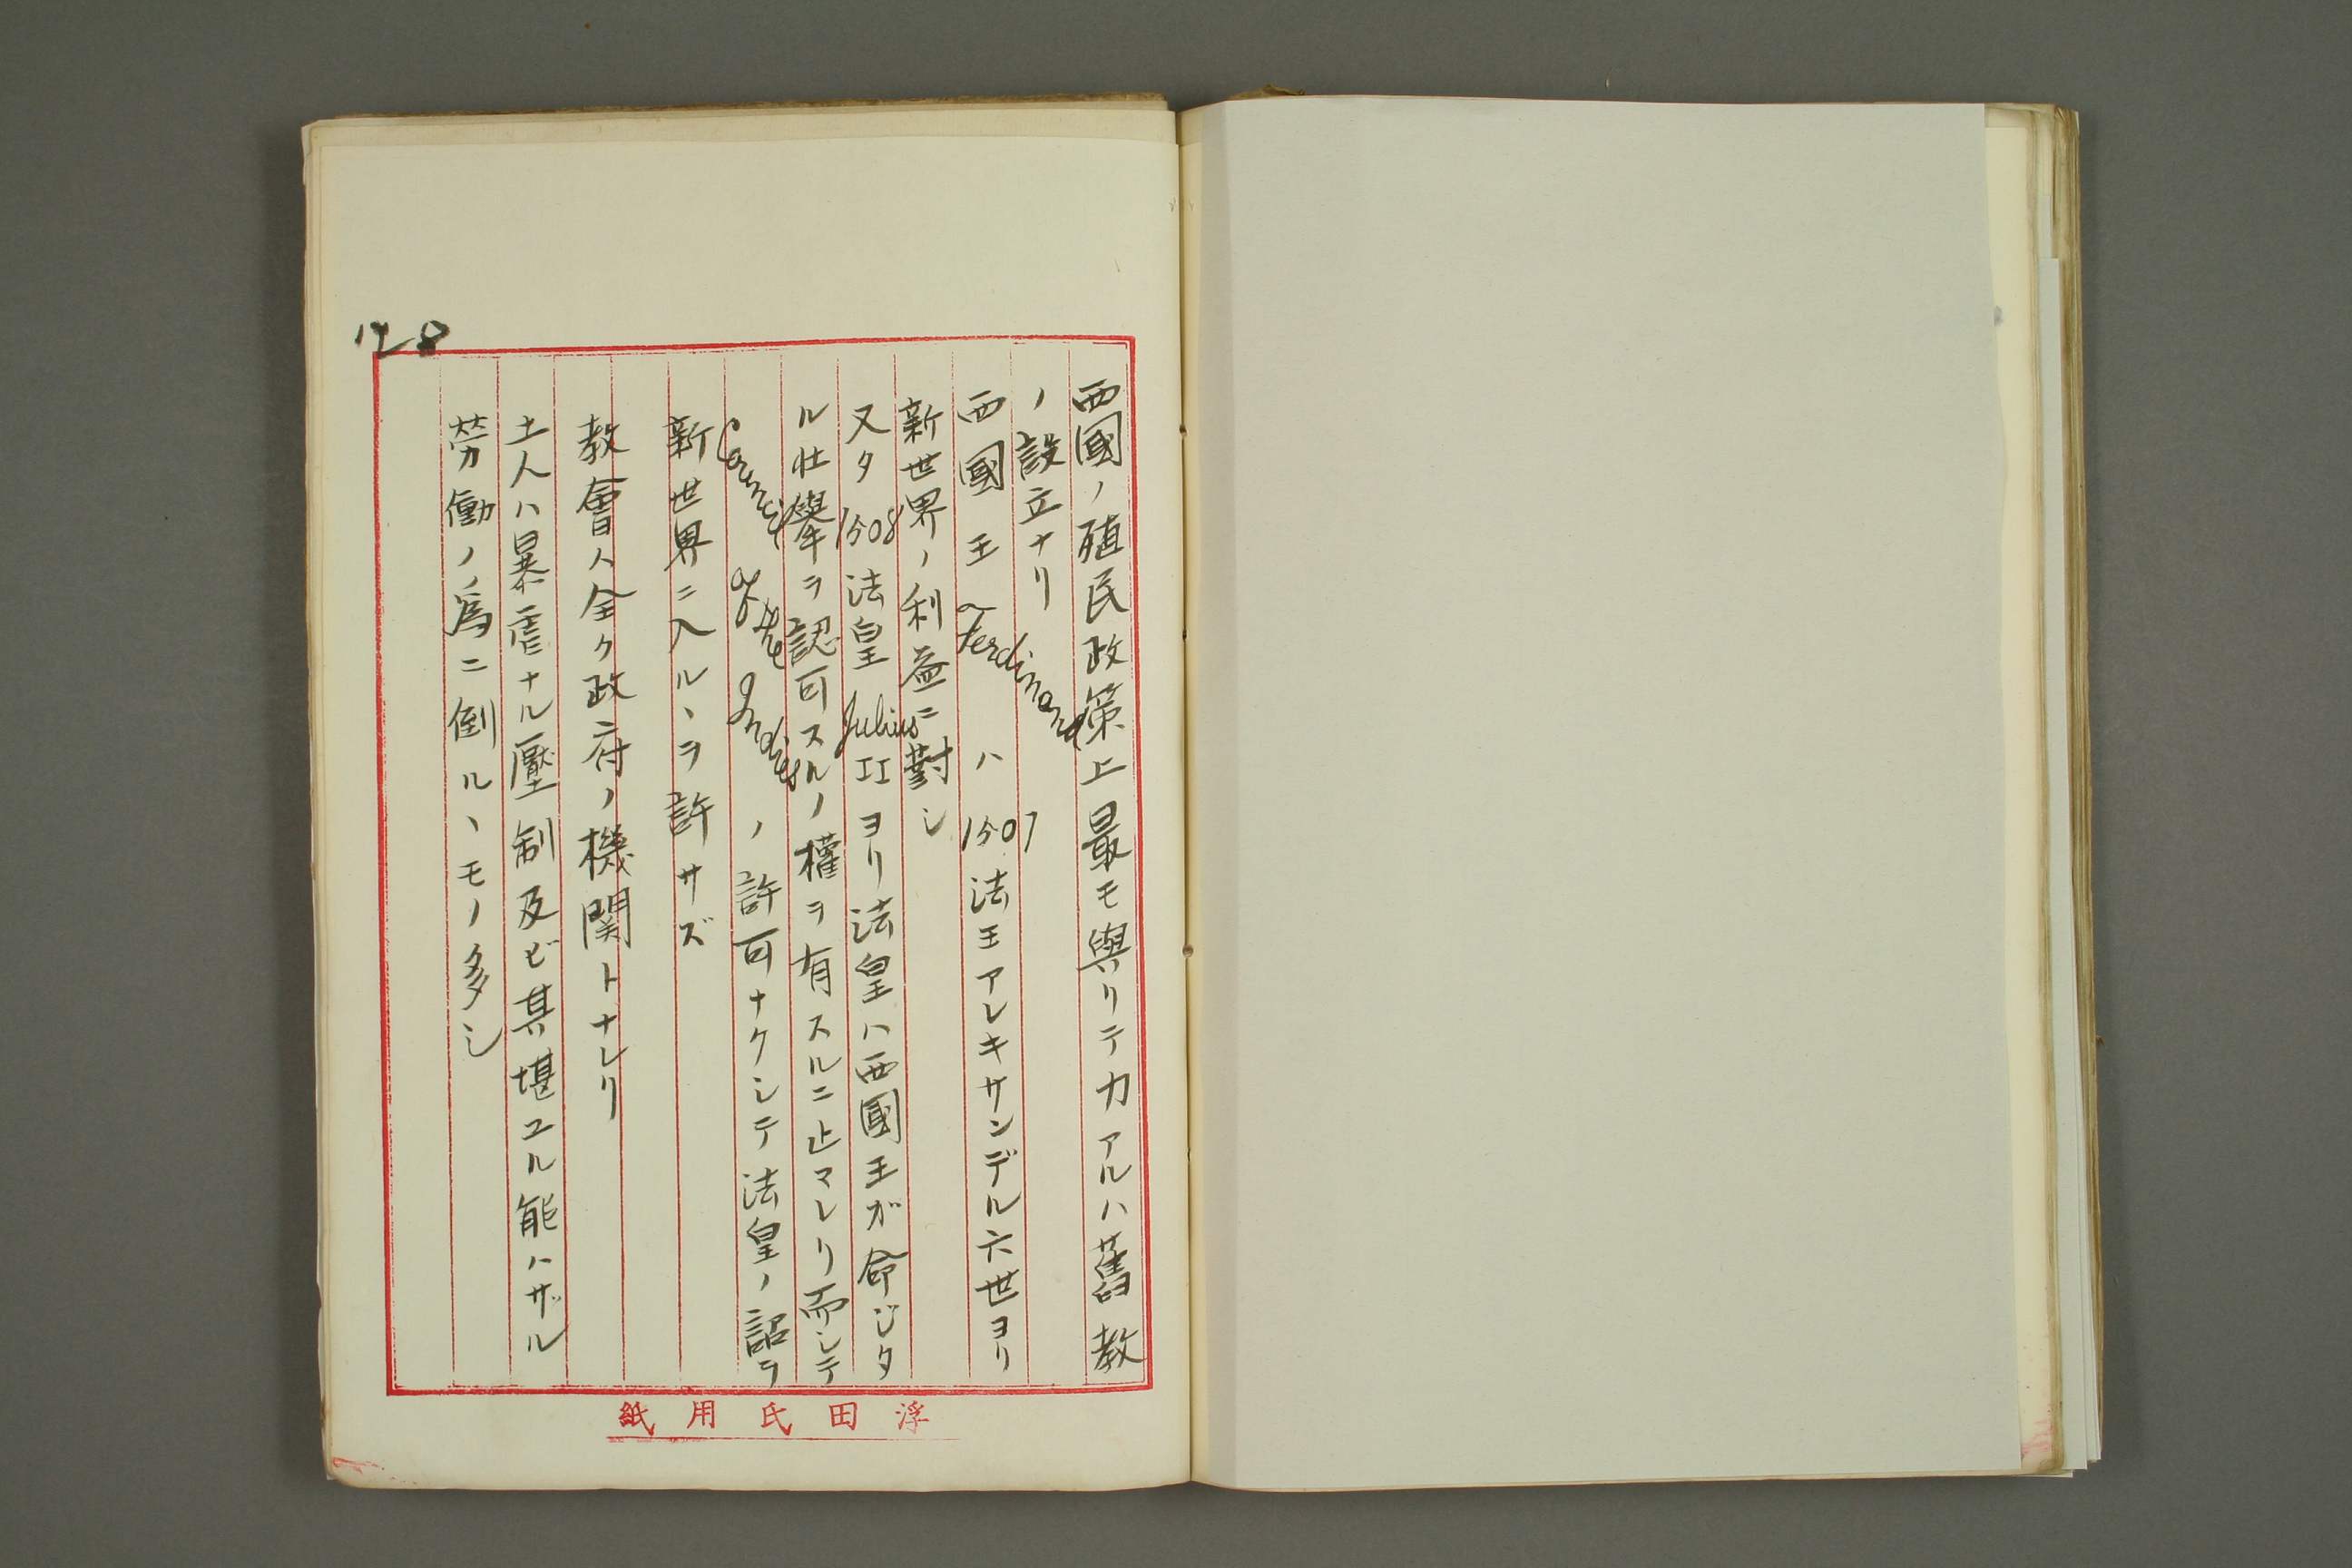 西國ノ殖民政策上最モ與リテ力アルハ舊教
ノ設立ナリ
西國王 Ferdinand ハ 1507 法王アレキサンデル六世ヨリ
新世界ノ利益ニ對シ
又タ 1508 法皇 Julius II ヨリ法皇ハ西國王ガ命ジタ
ル壮擧ヲ認可スルノ權ヲ有スルニ止マレリ而シテ
Council of the Indies ノ許可ナクシテ法皇ノ詔ヲ
新世界ニ入ルヽヲ許サズ
教會ハ全ク政府ノ機関トナレリ
土人ハ暴虐ナル壓制及ビ其堪ユル能ハザル
労働ノ爲ニ倒ルヽモノ多シ
128
浮田氏用紙